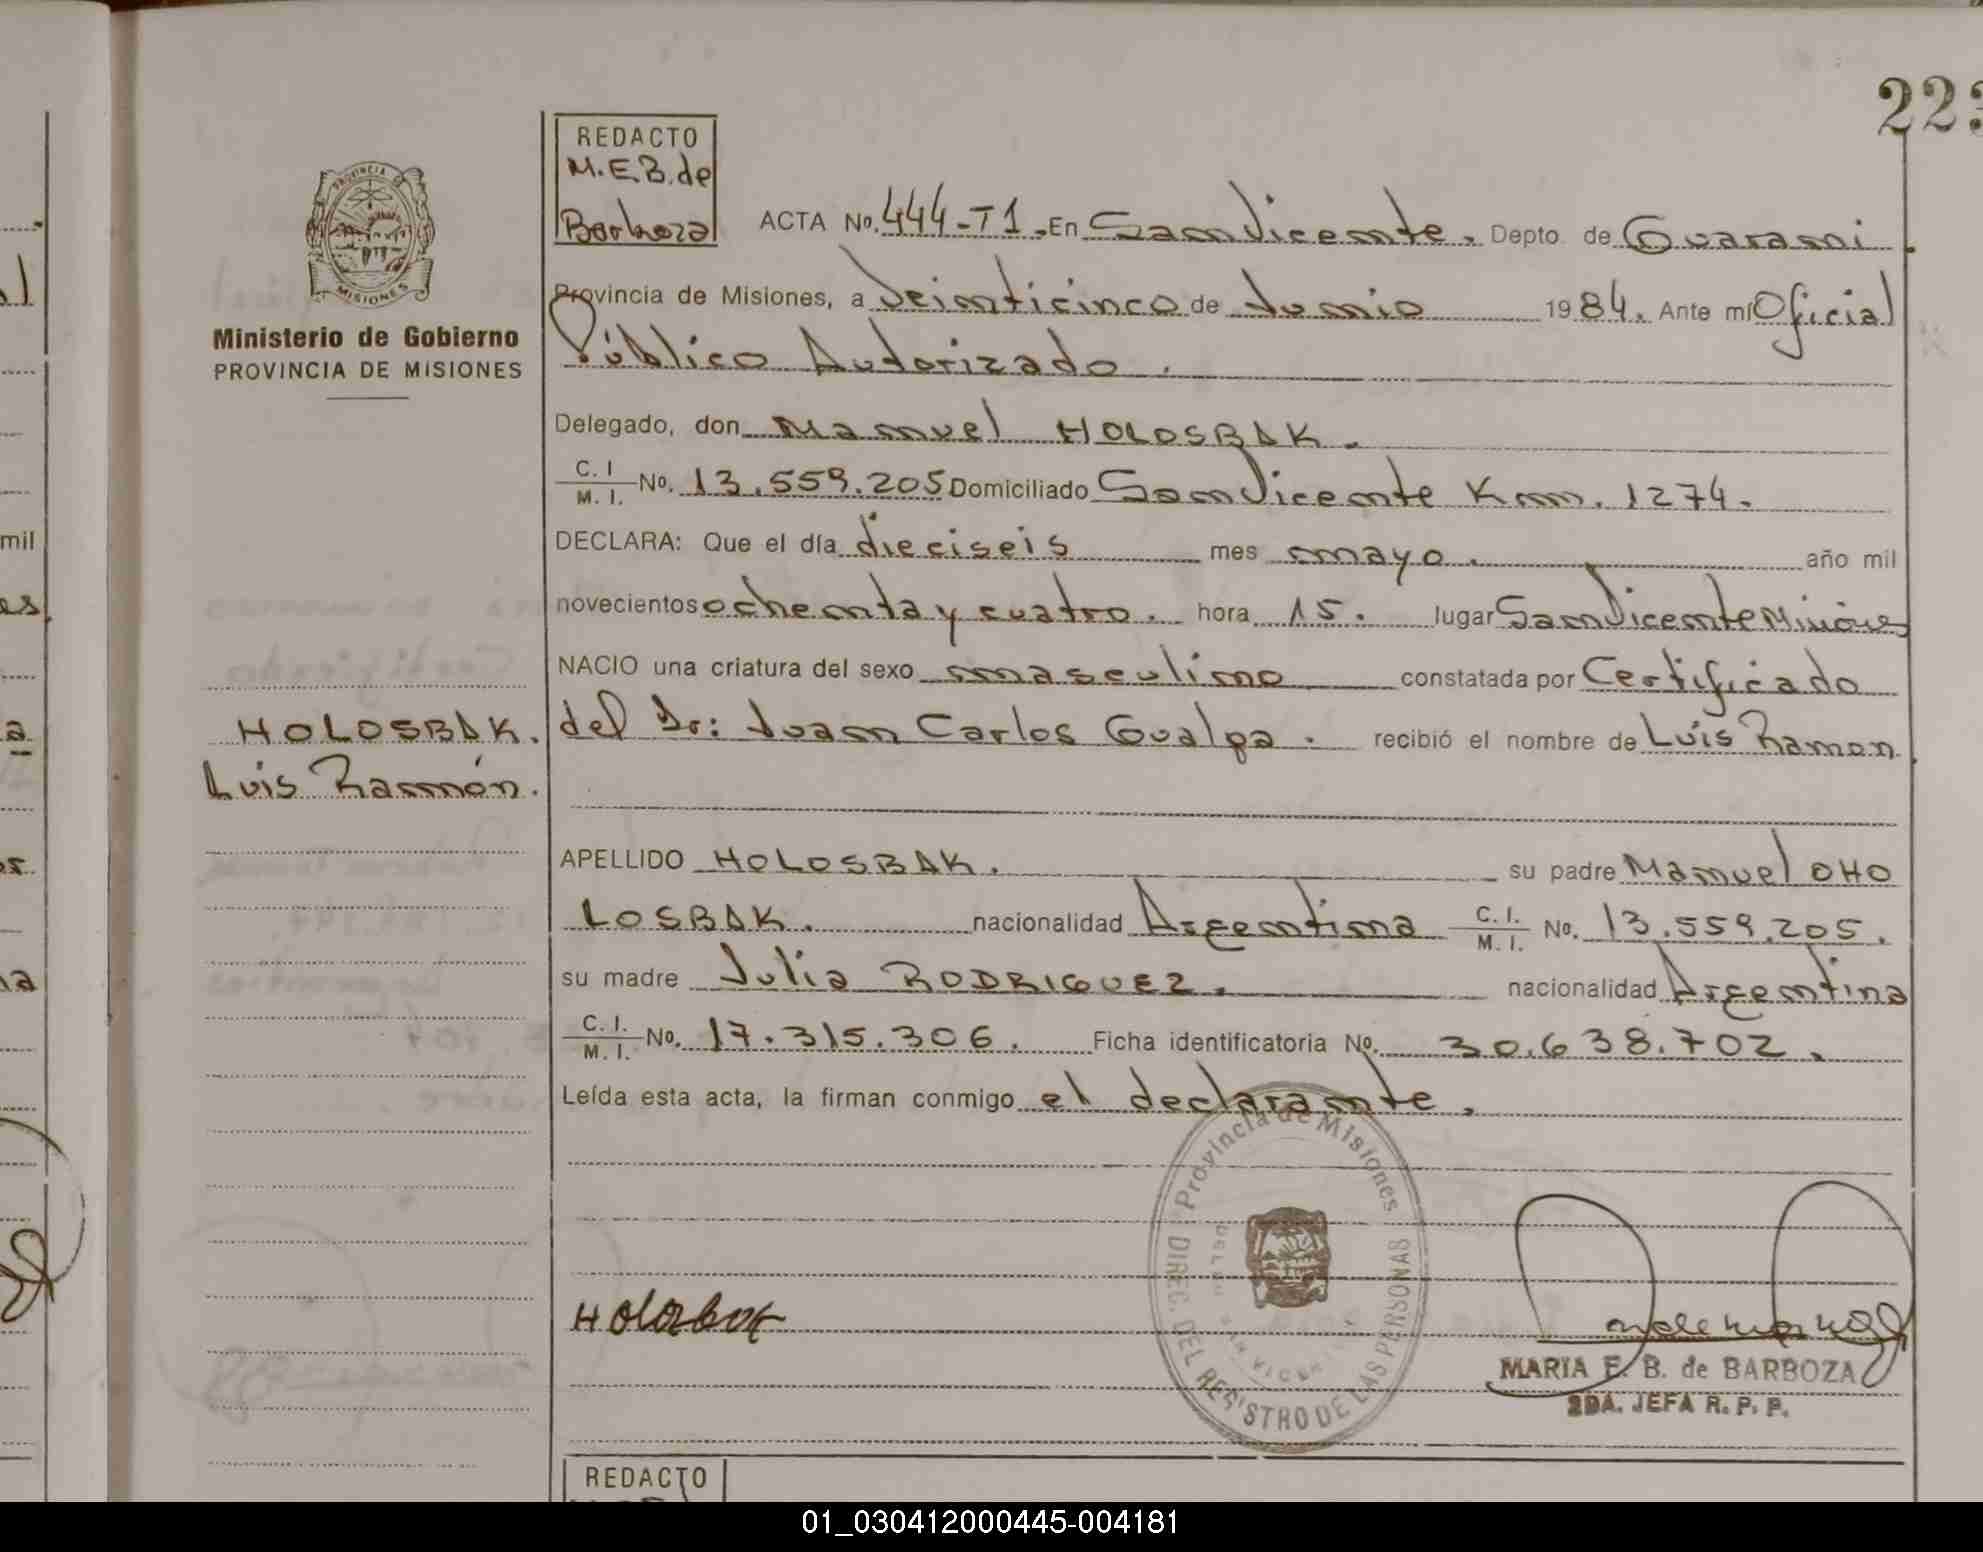 223
REDACTO
M.E.B. de
Barboza
ACTA No. 444-T1. En San Vicente. Depto. de Guarani
PROVINCIA DE
MISIONES
Ministerio de Gobierno
PROVINCIA DE MISIONES
Provincia de Misiones, a Veinticinco de Junio 1984. Ante mí Oficial
Público Autorizado.
Delegado, don Manuel HOLOSBAK.
C. I. / M. I. No. 13.559.205 Domiciliado San Vicente Km. 1274.
DECLARA: Que el día dieciseis mes mayo. año mil
novecientos ochenta y cuatro. hora 15. lugar San Vicente Misiones
NACIO una criatura del sexo masculino constatada por Certificado
HOLOSBAK.
del Dr: Juan Carlos Gualpa. recibió el nombre de Luis Ramon
Luis Ramón.
APELLIDO HOLOSBAK. su padre Manuel OHO
LOSBAK. nacionalidad Argentina C. I. / M. I. No. 13.559.205.
su madre Julia RODRIGUEZ. nacionalidad Argentina
C. I. / M. I. No. 17.315.306. Ficha identificatoria No. 30.638.702.
Leída esta acta, la firman conmigo el declarante.
Provincia de Misiones
DIREC. DEL REGISTRO DE LAS PERSONAS
Holosbak
MARIA E. B. de BARBOZA
2DA. JEFA R. P. P.
REDACTO
01_030412000445-004181